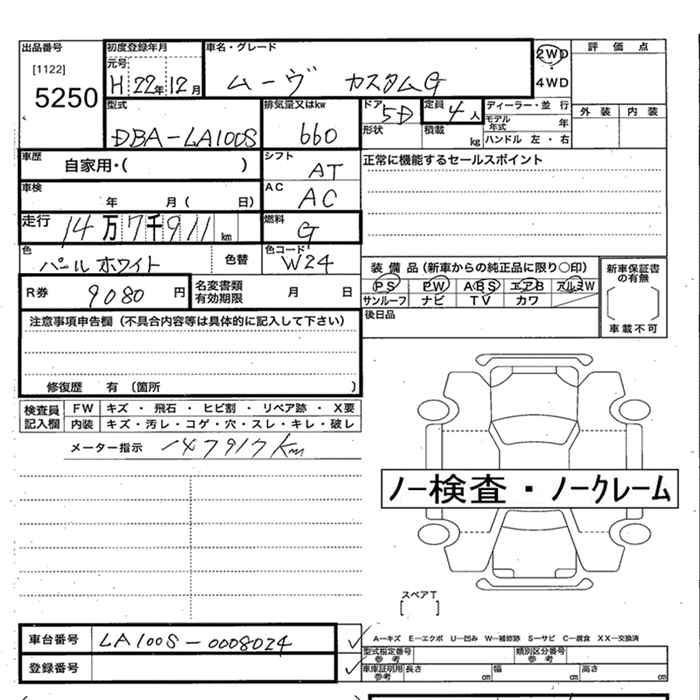 出品番号
[1122]
5250
初度登録年月
元号
H 22年 12月
車名・グレード
ムーヴ カスタムG
2WD
4WD
評 価 点
外 装 内 装
型式
DBA-LA100S
排気量又はkw
660
ドア
5D
定員
4人
形状
積載
kg
ディーラー・並 行
モデル年式 年
ハンドル 左・右
車歴
自家用・( )
シフト
AT
正常に機能するセールスポイント
車検
年 月( 日)
AC
AC
走行
14万7千911km
燃料
G
色
パールホワイト
色替
色コード
W24
装 備 品 (新車からの純正品に限り○印)
PS PW ABS エアB アルミW
サンルーフ ナビ TV カワ
新車保証書の有無
車載不可
R券
9080 円
名変書類有効期限
月 日
後日品
注意事項申告欄 (不具合内容等は具体的に記入して下さい)
修復歴 有 (箇所 )
検査員記入欄
FW キズ・飛石・ヒビ割・リペア跡・X要
内装 キズ・汚レ・コゲ・穴・スレ・キレ・破レ
メーター指示 147917km
ノー検査・ノークレーム
スペアT
[ ]
車台番号
LA100S-0008024
登録番号
A―キズ E―エクボ U―凹み W―補修跡 S―サビ C―腐食 XX―交換済
型式指定番号
参考
類別区分番号
参考
車庫証明用
参考
長さ cm
幅 cm
高さ cm